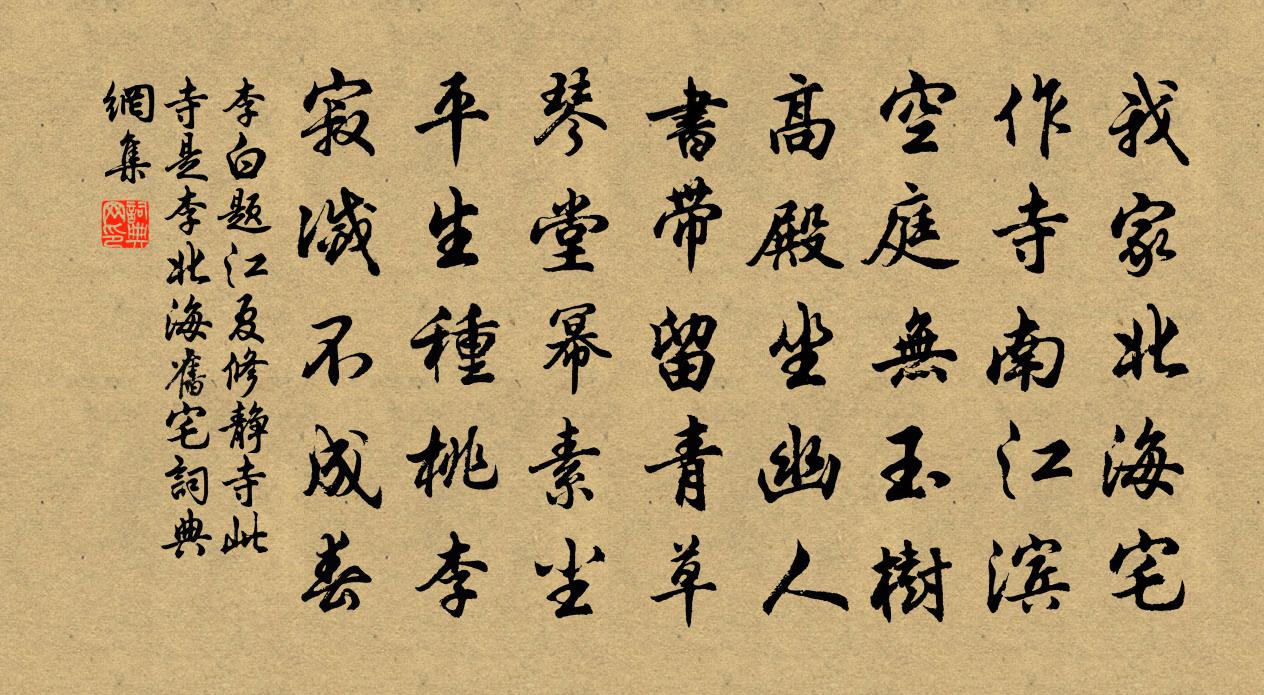 我家北海宅
作寺南江滨
空庭無玉樹
高殿坐幽人
書带留青草
琴堂幂素尘
平生種桃李
寂滅不成春
李白题江夏修静寺此
寺是李北海舊宅詞典
網集
詞典
网印